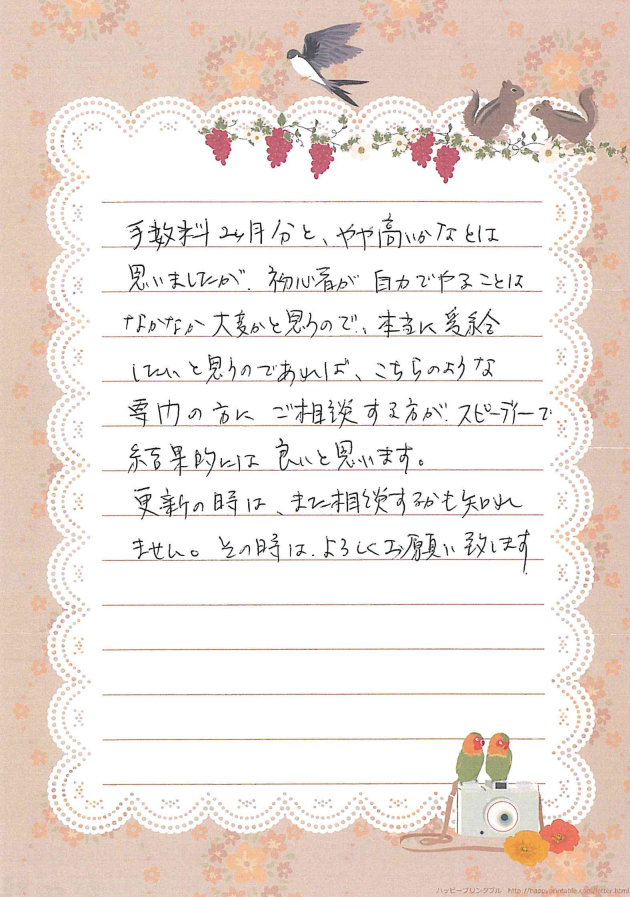 手数料2ヶ月分と、やや高いかなとは
思いましたが、初心者が自力でやることは
なかなか大変かと思うので、本当に受給
したいと思うのであれば、こちらのような
専門の方にご相談する方が、スピーディーで
結果的には良いと思います。
更新の時は、また相談するかも知れ
ません。その時は、よろしくお願い致します
ハッピープリンタブル http://happyprintable.com/letter.html